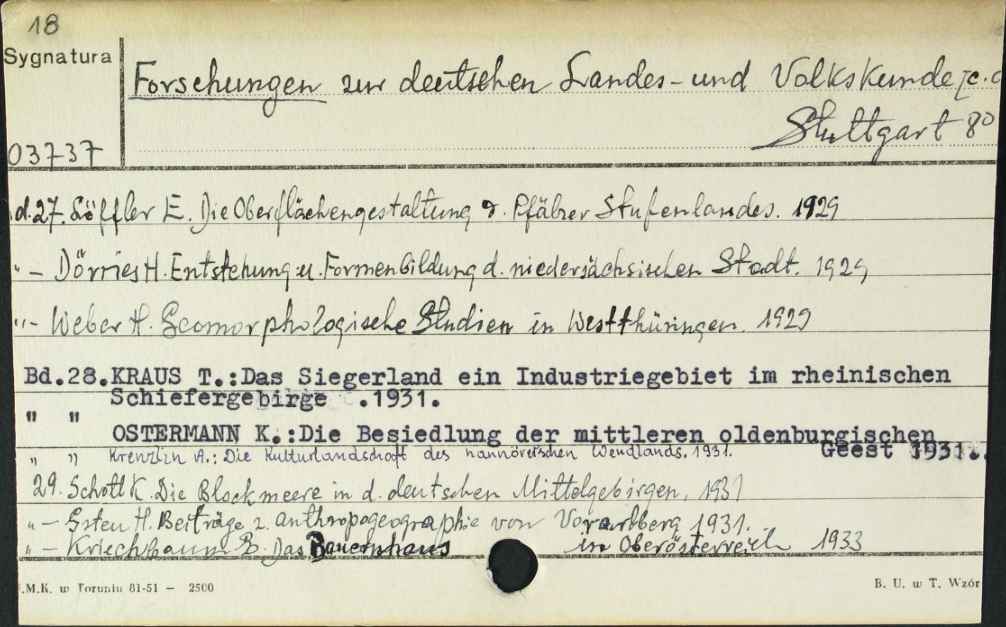 18
Sygnatura
Forschungen zur deutschen Landes- und Volkskunde
Stuttgart 8°
03737
d.27. Löffler E. Die Oberflächengestaltung d. Pfälzer Stufenlandes. 1929
" — Dörries H. Entstehung u. Formenbildung d. niedersächsischen Stadt. 1929
" - Weber H. Geomorphologische Studien in Westthüringen. 1929
Bd.28.KRAUS T.:Das Siegerland ein Industriegebiet im rheinischen
Schiefergebirge .1931.
" " OSTERMANN K.:Die Besiedlung der mittleren oldenburgischen
Geest 1931.
" " Krenzlin A.: Die Kulturlandschaft des hannöverschen Wendlands. 1931.
29. Schott K. Die Blockmeere in d. deutschen Mittelgebirgen, 1931
" — Gsteu H. Beiträge z. anthropogeographie von Vorarlberg 1931.
" — Kriechbaum E. Das Bauernhaus in Oberösterreich 1933
.M.K. w Toruniu 81-51 — 2500
B. U. w T. Wzór